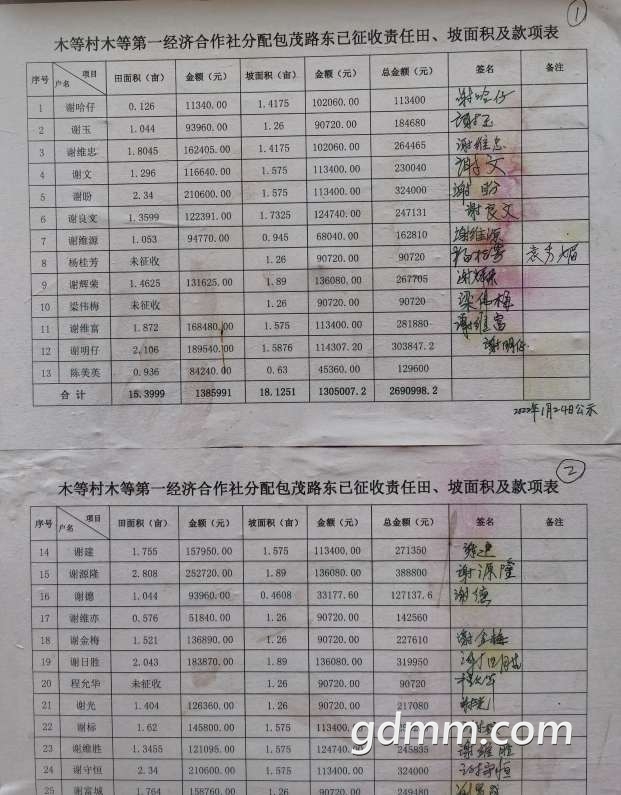 ①
木等村木等第一经济合作社分配包茂路东已征收责任田、坡面积及款项表
序号 项目 户名 田面积（亩） 金额（元） 坡面积（亩） 金额（元） 总金额（元） 签名 备注
1 谢哈仔 0.126 11340.00 1.4175 102060.00 113400 谢哈仔
2 谢玉 1.044 93960.00 1.26 90720.00 184680 谢玉
3 谢维忠 1.8045 162405.00 1.4175 102060.00 264465 谢维忠
4 谢文 1.296 116640.00 1.575 113400.00 230040 谢文
5 谢盼 2.34 210600.00 1.575 113400.00 324000 谢盼
6 谢良文 1.3599 122391.00 1.7325 124740.00 247131 谢良文
7 谢维源 1.053 94770.00 0.945 68040.00 162810 谢维源
8 杨桂芳 未征收 1.26 90720.00 90720
9 谢辉荣 1.4625 131625.00 1.89 136080.00 267705
10 梁伟梅 未征收 1.26 90720.00 90720 梁伟梅
11 谢维富 1.872 168480.00 1.575 113400.00 281880 谢维富
12 谢明仔 2.106 189540.00 1.5876 114307.20 303847.2 谢明仔
13 陈美英 0.936 84240.00 0.63 45360.00 129600
合计 15.3999 1385991 18.1251 1305007.2 2690998.2
2022年1月24日公示
②
木等村木等第一经济合作社分配包茂路东已征收责任田、坡面积及款项表
序号 项目 户名 田面积（亩） 金额（元） 坡面积（亩） 金额（元） 总金额（元） 签名 备注
14 谢建 1.755 157950.00 1.575 113400.00 271350 谢建
15 谢源隆 2.808 252720.00 1.89 136080.00 388800 谢源隆
16 谢德 1.044 93960.00 0.4608 33177.60 127137.6 谢德
17 谢维亦 0.576 51840.00 1.26 90720.00 142560
18 谢金梅 1.521 136890.00 1.26 90720.00 227610 谢金梅
19 谢日胜 2.043 183870.00 1.89 136080.00 319950
20 程允华 未征收 1.26 90720.00 90720 程允华
21 谢光 1.404 126360.00 1.26 90720.00 217080
22 谢标 1.62 145800.00 1.575 113400
23 谢维胜 1.3455 121095.00 1.575 124740.00 245835 谢维胜
24 谢守恒 2.34 210600.00 1.575 113400.00 324000 谢守恒
25 谢富城 1.764 158760.00 1.26 90720.00 249480
gdmm.com